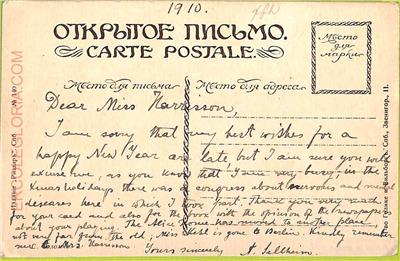 1910.
ОТКРЫТОЕ ПИСЬМО.
CARTE POSTALE.
Место для марки
Место для письма
Место для адреса
Dear Miss Harrisson,
I am sorry that my best wishes for a
happy New Year are late, but I am sure you will
excuse me, as you know that I am very busy in the
Xmas holidays there was a congress about nervous and mental
deseases here in which I took part. Thank you very much
for your card and also for the book with the opinion of the newspapers
about your playing. The Alice has removed to another place,
not very far from the old; Miss is you to Berlin. Kindly remember
me to Mrs. Harrisson. Yours sincerely A. Selltheim.
Издание "Ришаръ", Спб. № 140
Тво Голике и Вильборгъ, Спб., Звенигор., 11.